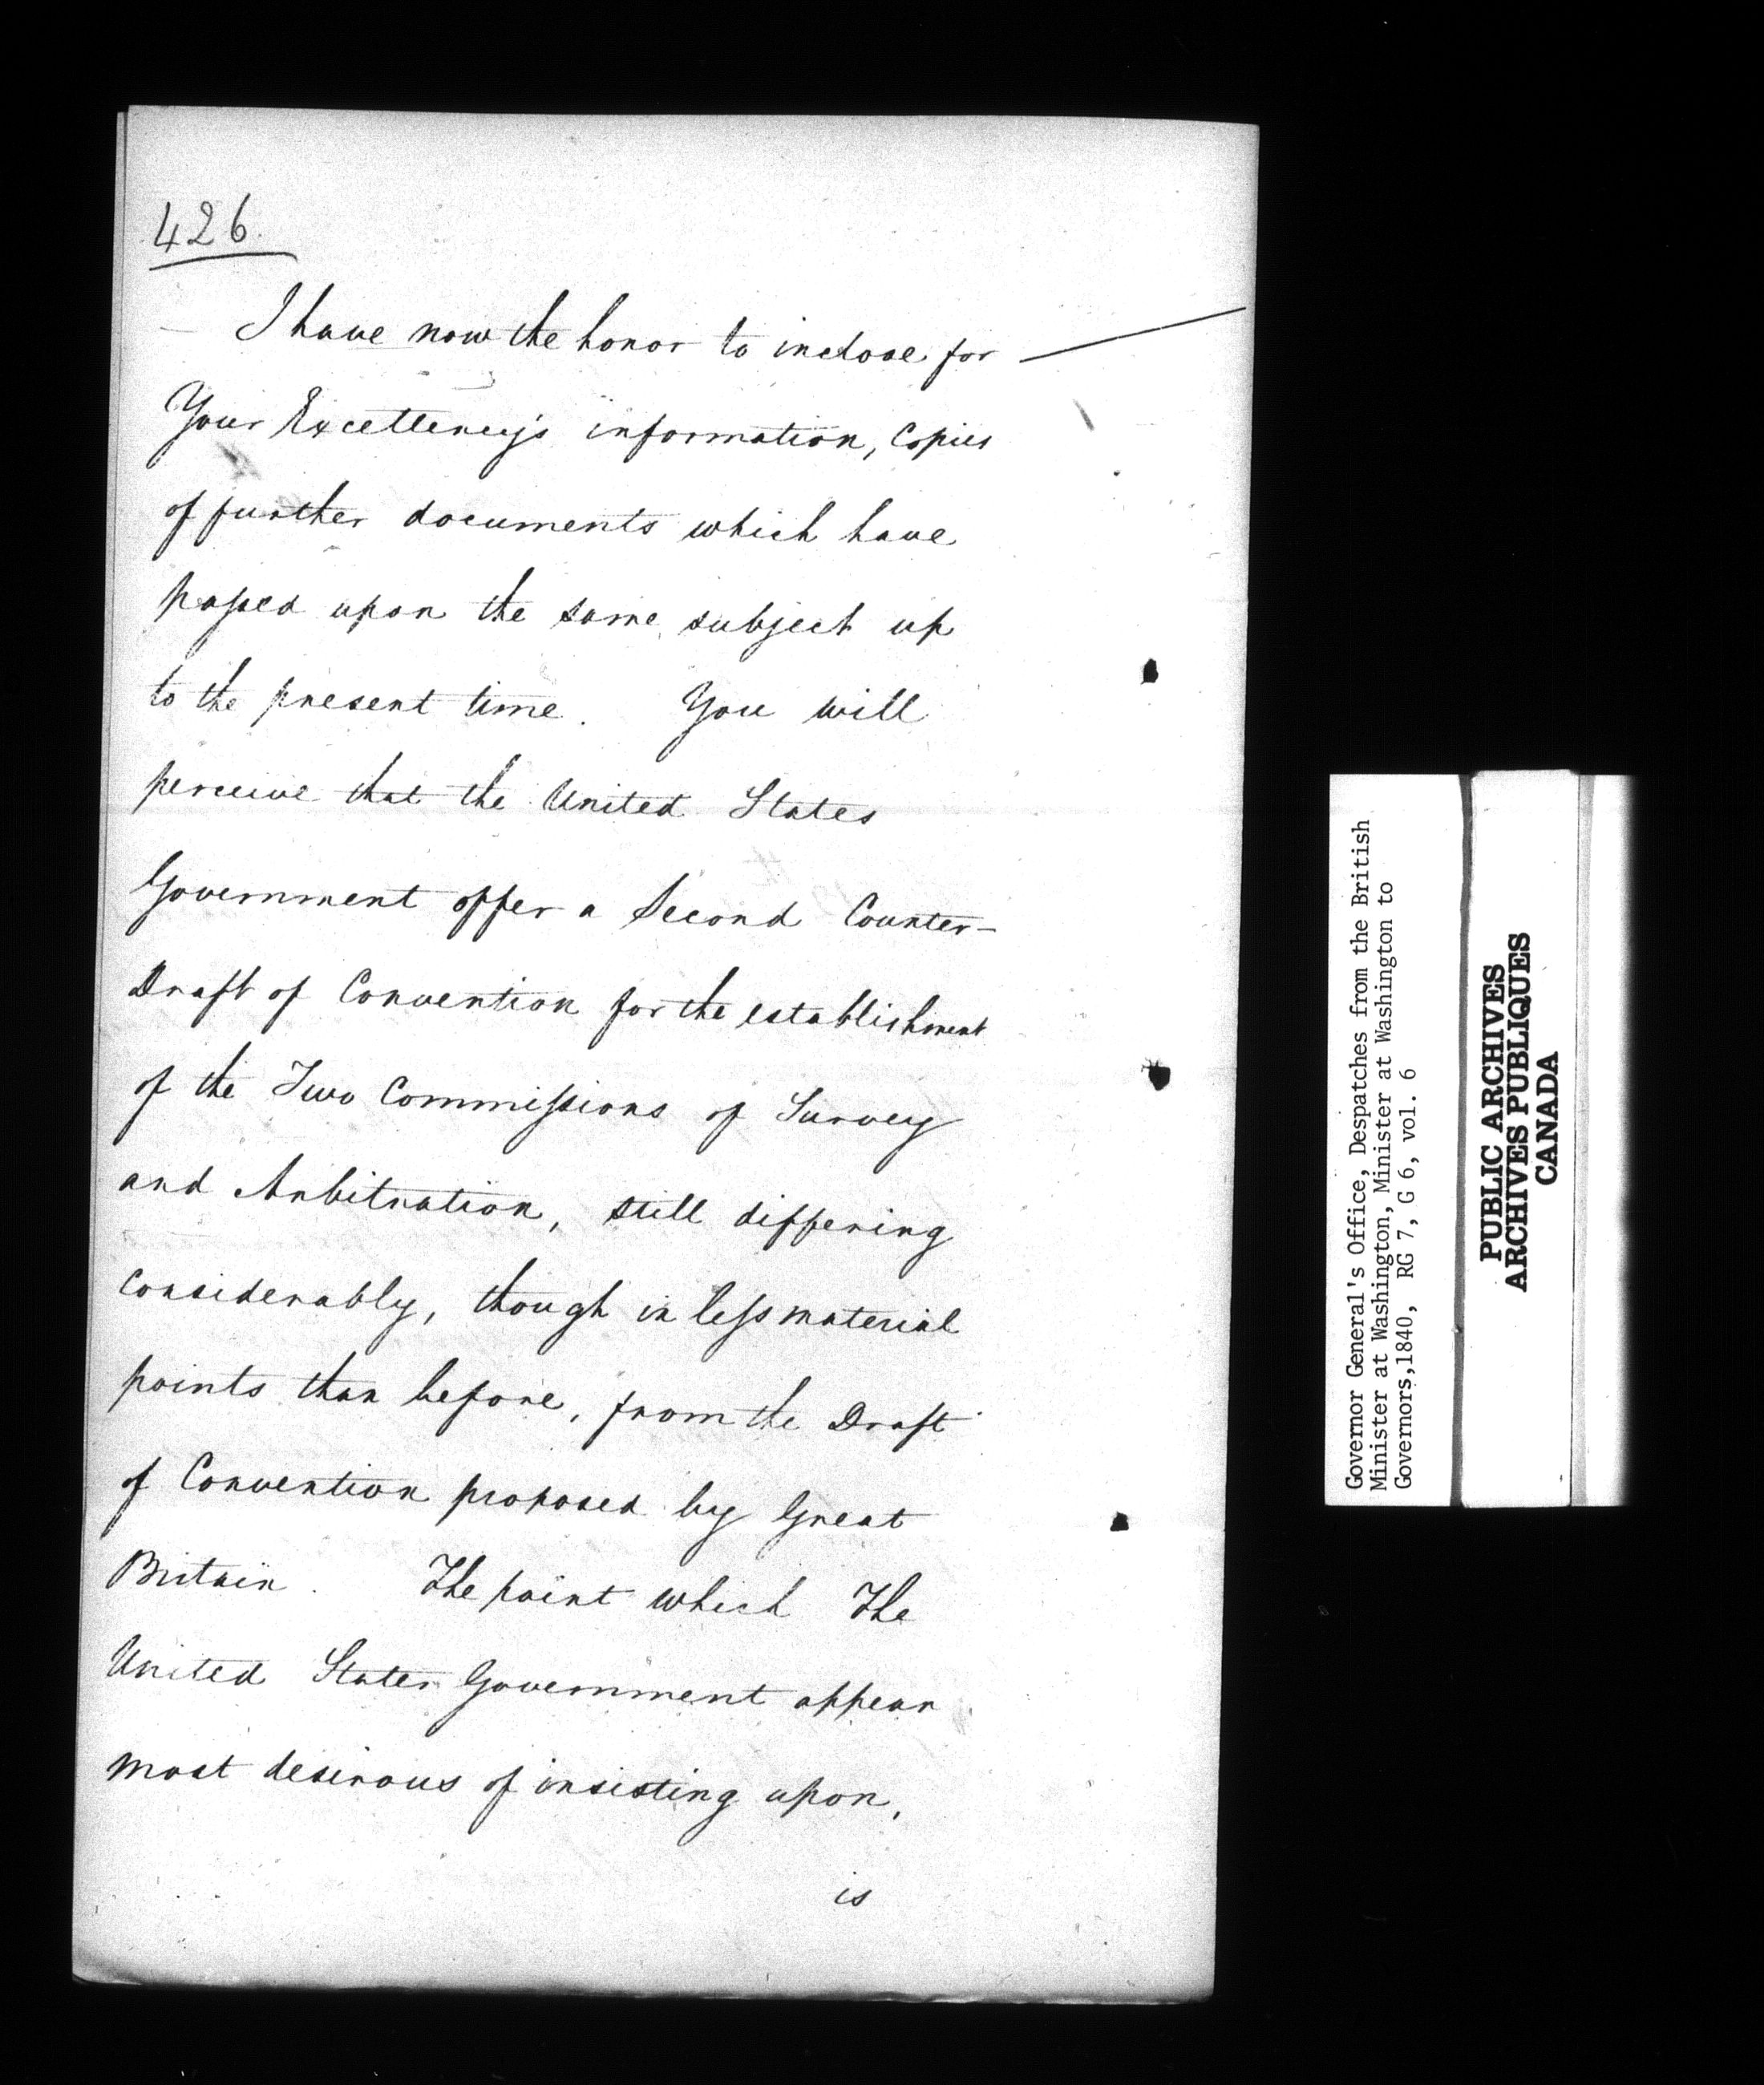 426.
I have now the honor to inclose for
Your Excellency's information, Copies
of further documents which have
passed upon the same subject up
to the present time. You will
perceive that the United States
Government offer a Second Counter-
Draft of Convention for the establishment
of the Two Commissions of Survey
and Arbitration, still differing
considerably, though in less material
points than before, from the Draft
of Convention proposed by Great
Britain. The point which The
United States Government appear
most desirous of insisting upon,
is
Governor General's Office, Despatches from the British
Minister at Washington, Minister at Washington to
Governors,1840, RG 7, G 6, vol. 6
PUBLIC ARCHIVES
ARCHIVES PUBLIQUES
CANADA